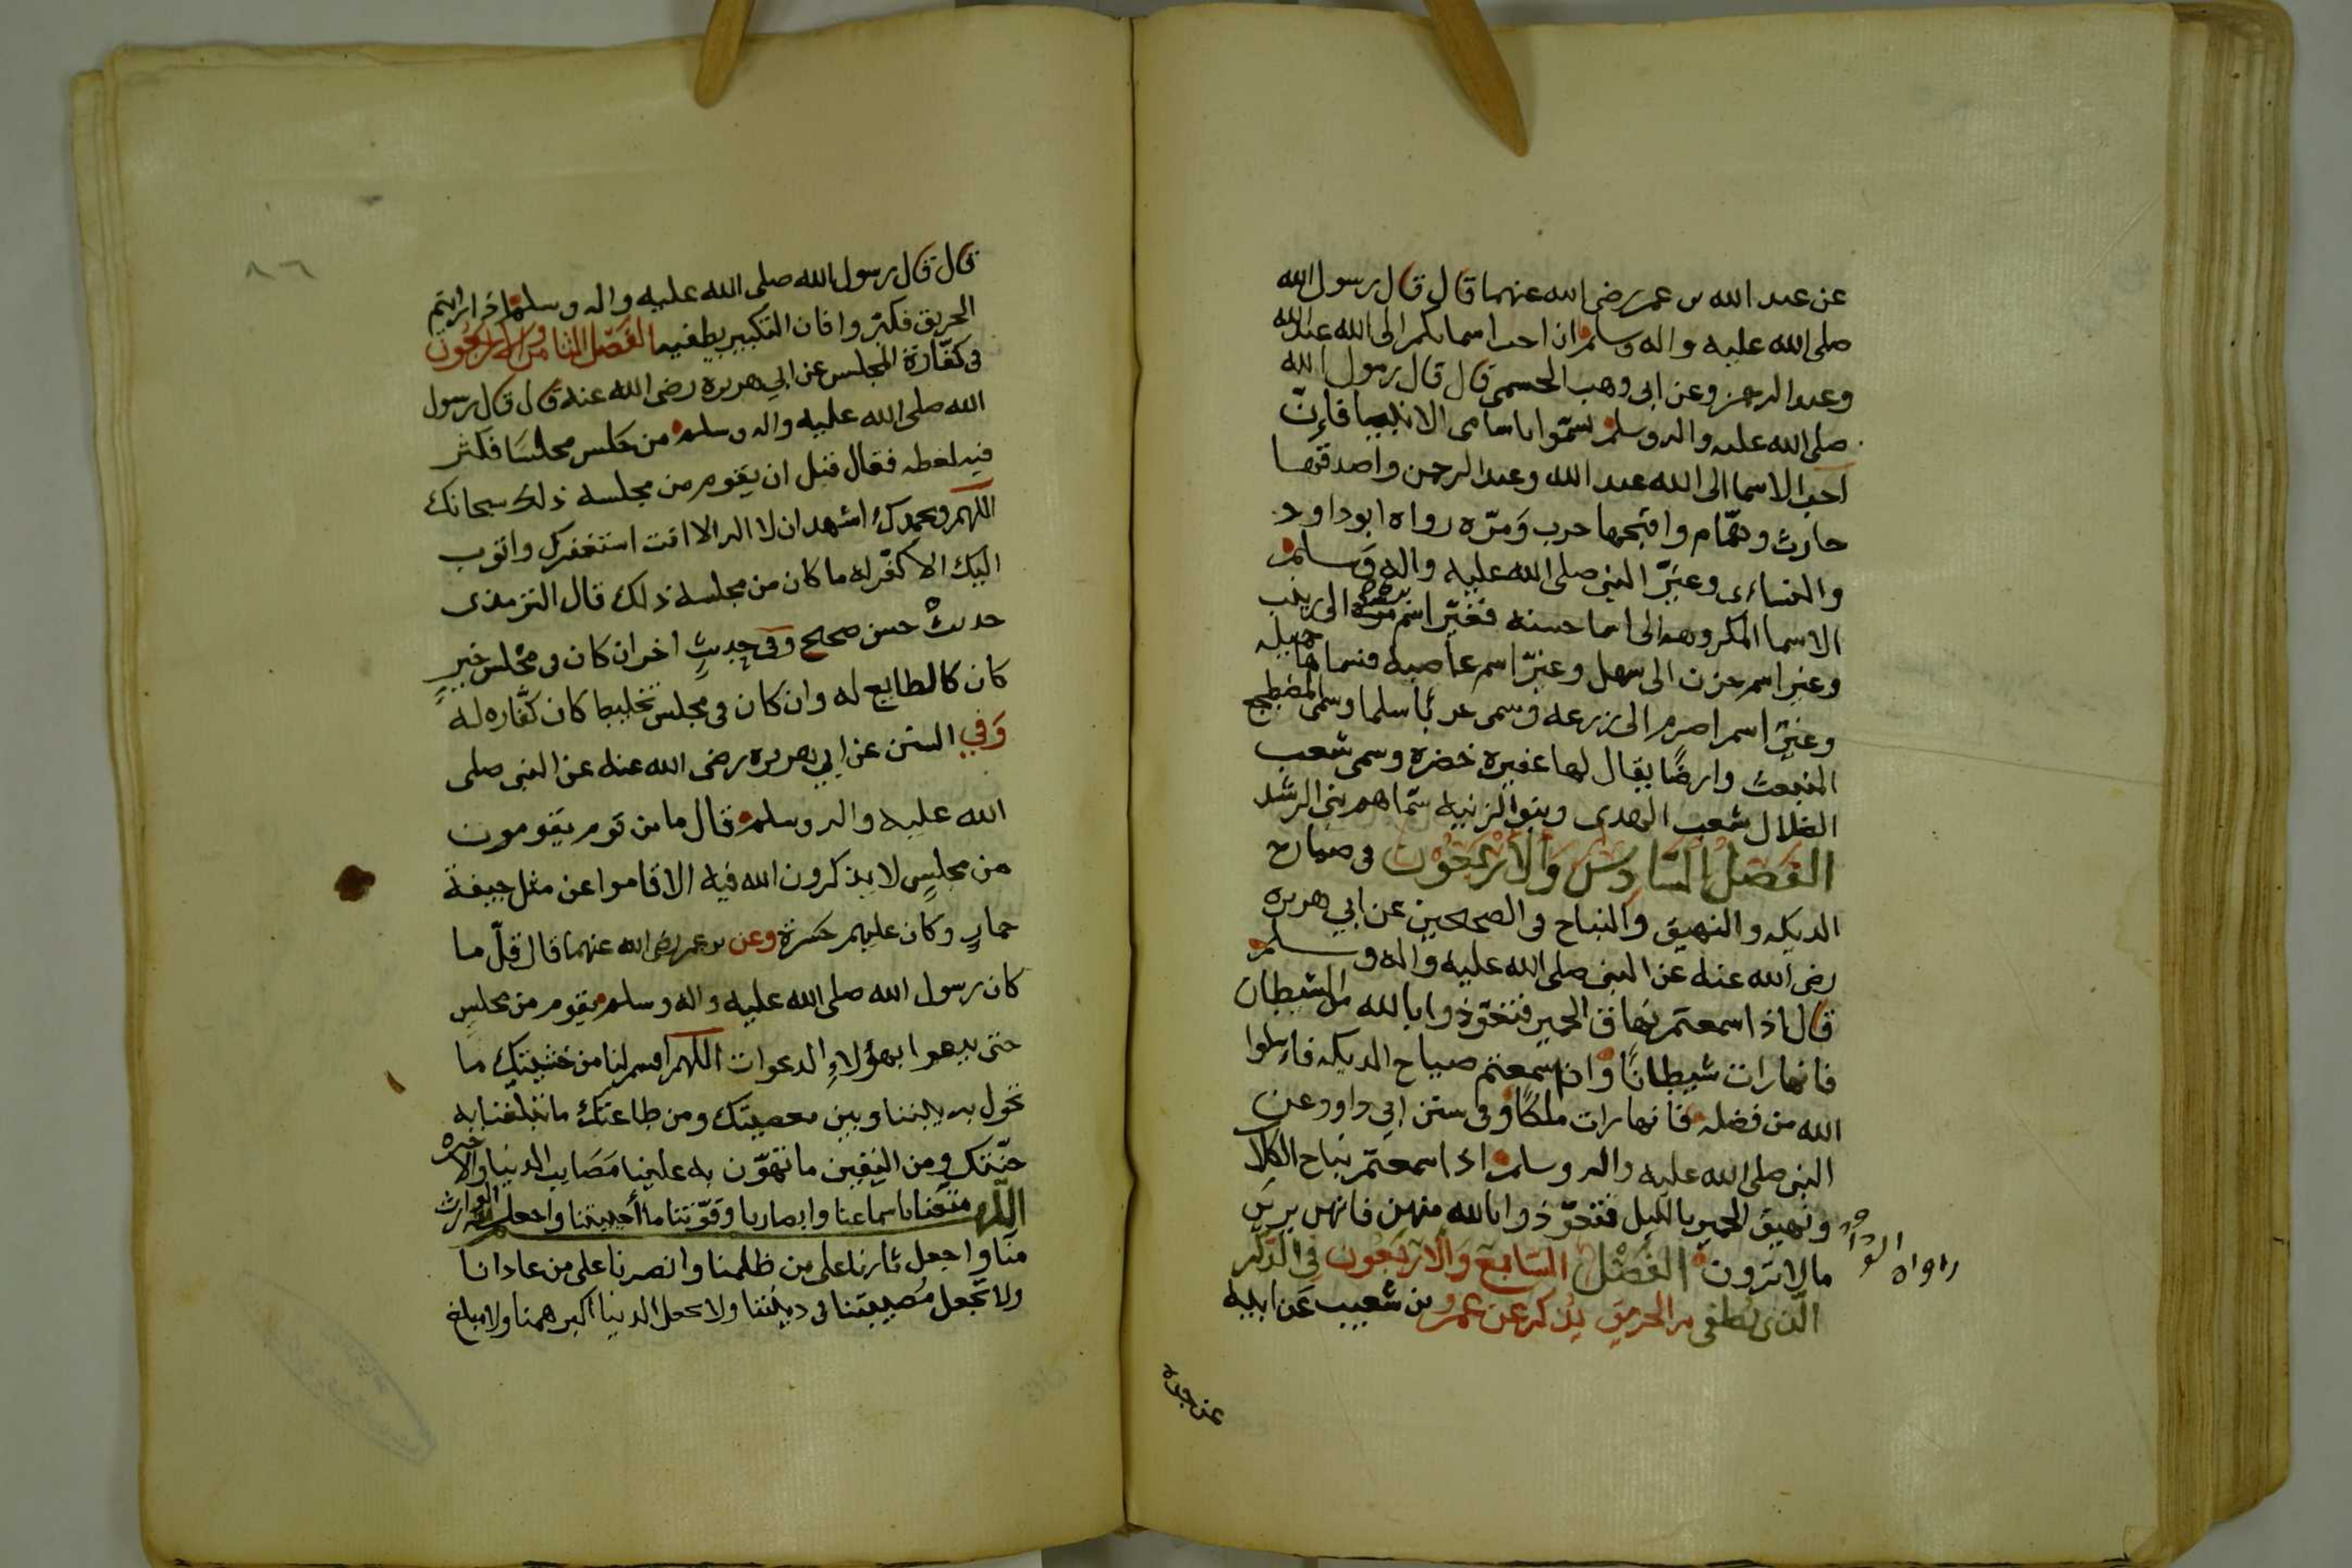 عن عبد الله بن عمر رضى الله عنهما قال قال رسول الله
صلى الله عليه واله وسلم ان احب اسمائكم الى الله عبد الله
وعبد الرحمن وعن ابى وهب الجشمى قال قال رسول الله
صلى الله عليه واله وسلم تسمّوا باسامى الانبيا فاِنّ
احب الاسما الى الله عبد الله وعبد الرحمن واصدقها
حارث وهمّام واقبحها حرب وَمرّه رواه ابو داود
والنساءى وغيّر النبى صلى الله عليه واله وَسلم
الاسما المكروهه الى اسما حسنه فغيّر اسم بره الى زينب
وغير اسم حزن الى سهل وغيّر اسم عاصيه فسماها جميله
وغيّر اسم اصرم الى زرعه وسمى حربًا سلما وسمى المضطجع
المنبعث وارضًا يقال لها عفيره خضره وسمى شعب
الضلال شعب الهدى وبنو الزنيه سمّاهم بنى الرشد
الفَصْلُ السّادِسُ وَالأرْبَعُوْن فى صياح
الديكه والنهيق والنباح فى الصحيحين عن ابي هريره
رضى الله عنه عن النبى صلى الله عليه واله وسلم
قال اذا سمعتم نهاق الحمير فتعوّذوا بالله من الشيطان
فانها رات شيطانًا وان سمعتم صياح الديكه فاسلوا
الله من فضله فانها رات ملكًا وفى سنن ابي داود عن
النبى صلى الله عليه واله وسلم اذا سمعتم نباح الكلاب
ونهيق الحمير بالليل فتعوّذوا بالله منهن فانهن يرين
مالا ترون الفَصْل السّابع وَالأرْبَعُون فى الذكر
الّذى يُطفى به الحريق يُذكر عن عمرو بن شعيب عَن ابيه
عن جده
٨٦
قال قال رسول الله صلى الله عليه واله وسلم اذا رايتم
الحريق فكبّروا فان التكبير يطفيه الفَصْل الثامن والأربعُون
فى كفّارة المجلس عن ابي هريره رضى الله عنه قال قال رسول
الله صلى الله عليه واله وسلم من جلس مجلسًا فكثر
فيه لغطه فقال قبل ان يقوم من مجلسه ذلك سبحانك
اللهم وبحمدك اشهد ان لا اله الا انت استغفرك واتوب
اليك الا كفّر له ما كان من مجلسه ذلك قال الترمذى
حديثٌ حسن صحيح وفى حديثٍ اخر ان كان فى مجلس خيرٍ
كان كالطابع له وان كان فى مجلس تخليط كان كفّاره له
وَفي السنن عن ابي هريره رضى الله عنه عن النبى صلى
الله عليه واله وسلم قال ما من قوم يقومون
من مجلسٍ لا يذكرون الله فيه الا قاموا عن مثل جيفة
حمارٍ وكان عليهم حسرة وعن بن عمر رضى الله عنهما قال قلّ ما
كان رسول الله صلى الله عليه واله وسلم يقوم من مجلسٍ
حتى يدعوا بهؤلاءِ الدعوات اللهم اقسم لنا من خشيتك ما
تحول به بيننا وبين معصيتك ومن طاعتك ما تبلغنا به
جنّتك ومن اليقين ما تهوّن به علينا مَصَايب الدنيا والاخره
اللّهم متعنا باسماعنا وابصارنا وقوّتنا ما أحييتنا واجعله الوارث
منّا واجعل ثارنا على من ظلمنا وانصرنا على من عادانا
ولا تجعل مُصيبتنا فى ديننا ولا تجعل الدنيا اكبر همنا ولا مبلغ